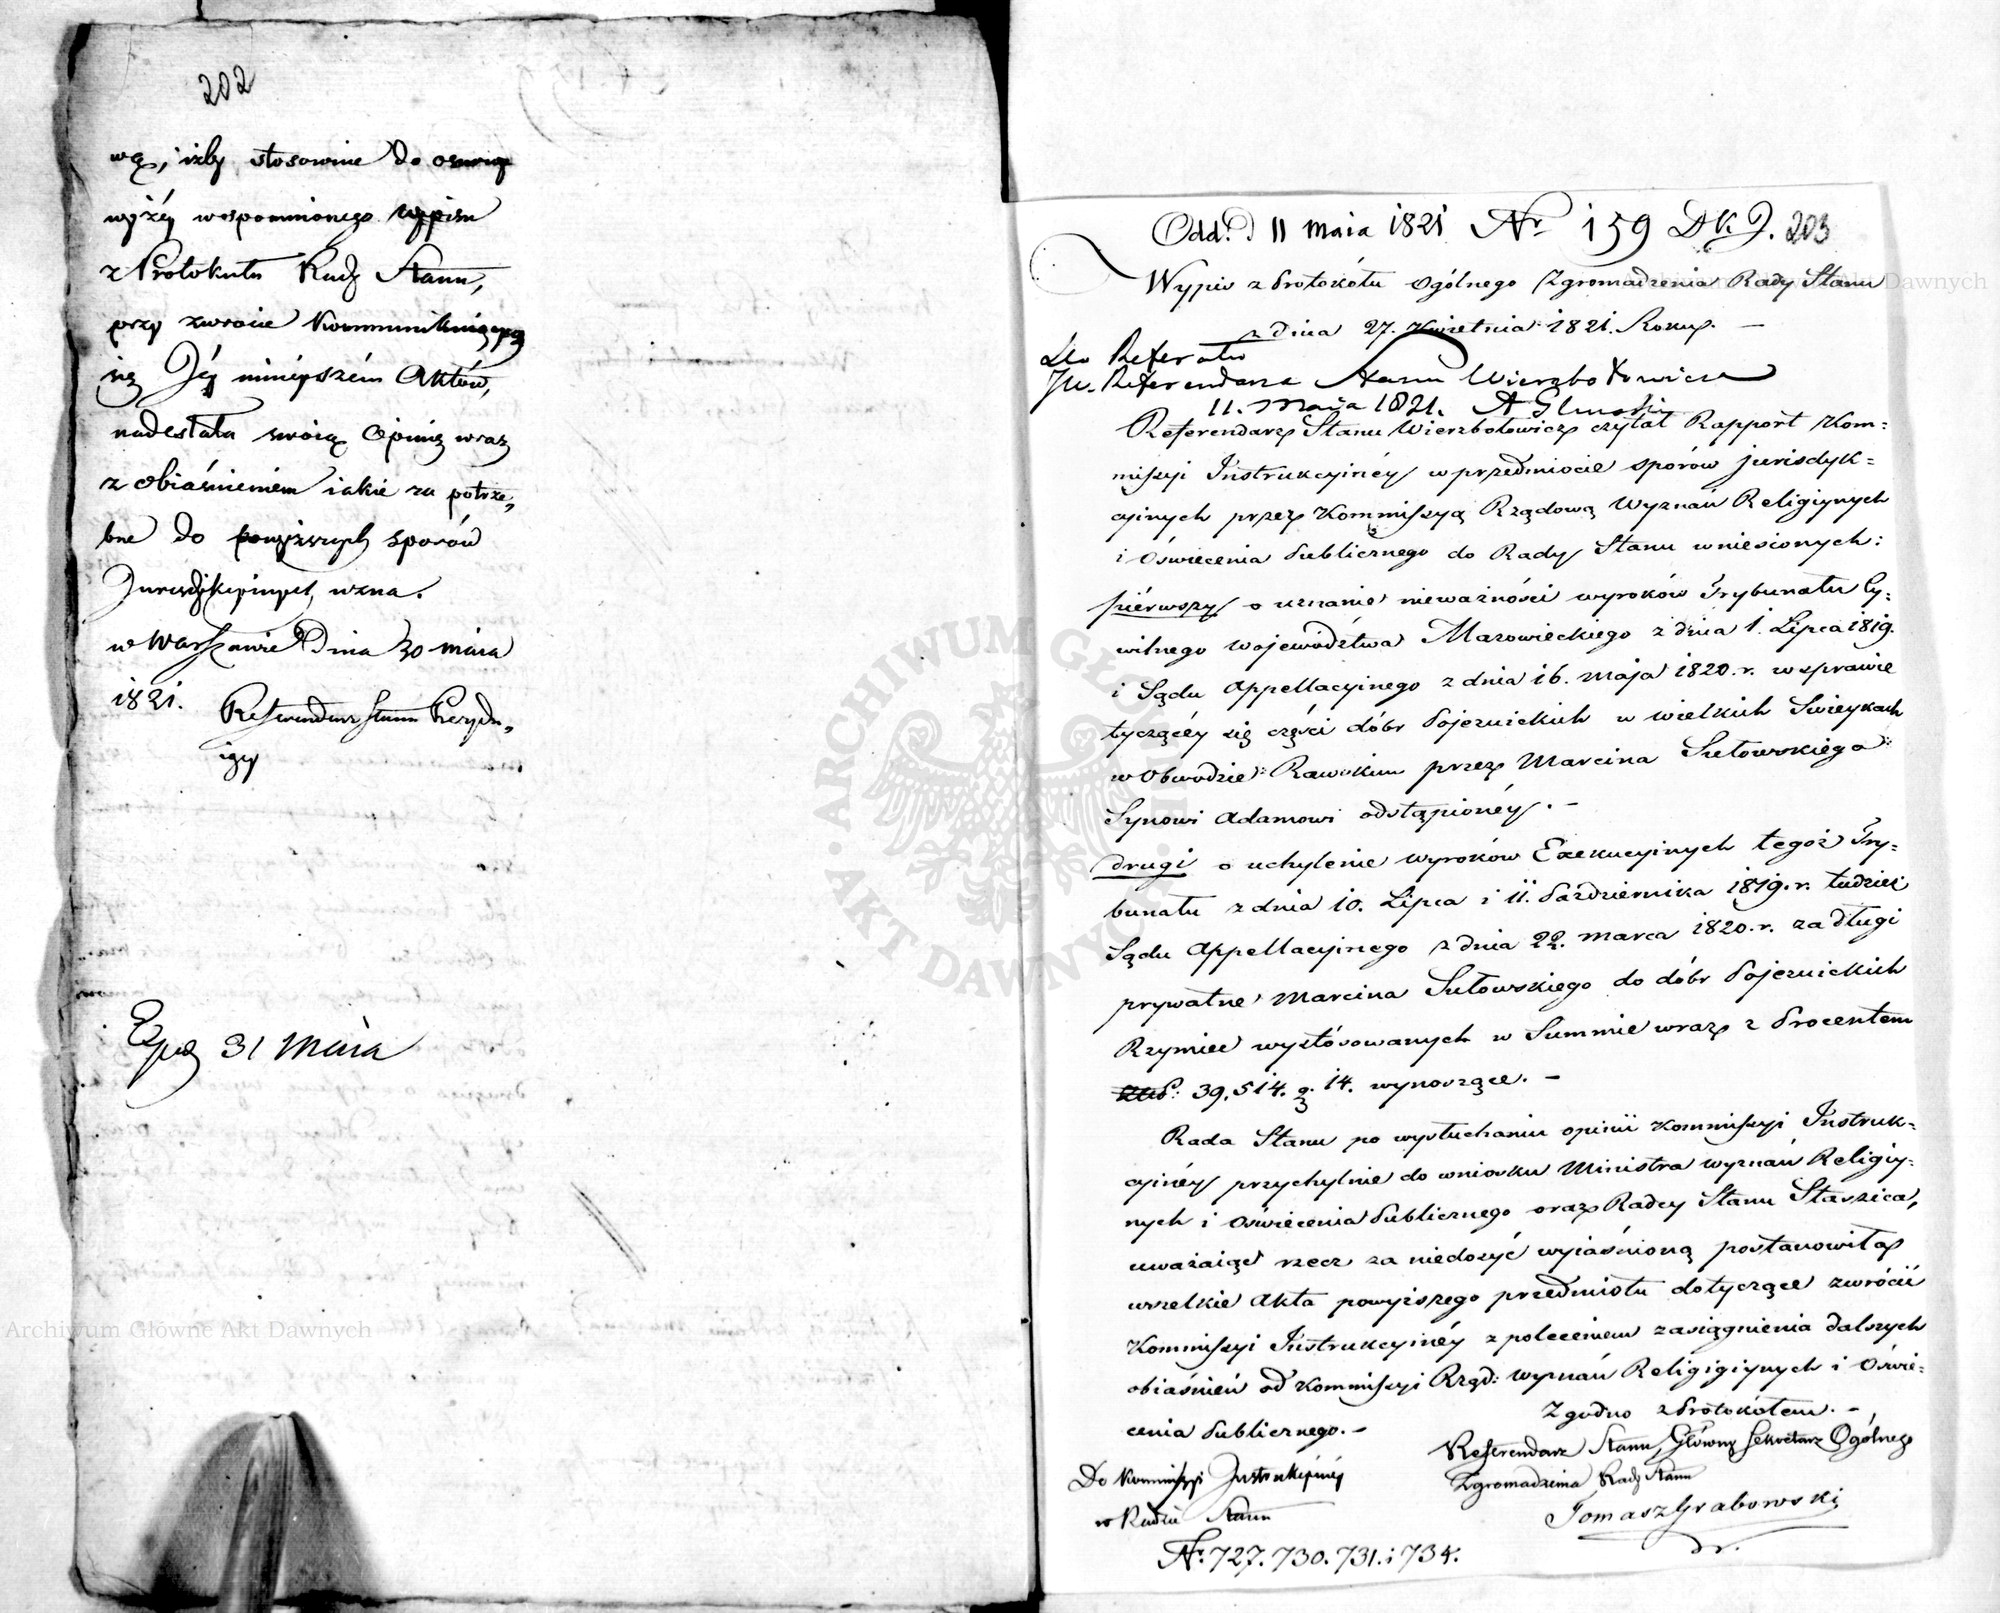 202
wę, iżby stosownie do osnowy
wyżéy wspomnionego wypisu
z Protokułu Rady Stanu,
przy zwrocie kommunikuiących
się Jéy ninieyszém Aktów,
nadesłała swoią Opinię wraz
z obiaśnieniem iakie za potrze„
bne do powyższych sporów
Jurisdykcyinych, uzna.
w Warszawie Dnia 30 maia
1821.
Referendarz Stanu Prezydu„
iący
Exp. 31 Maia
Odd. d 11 maia 1821 Nr 159 D.K.J. 203
Wypis z Protokółu Ogólnego Zgromadzenia Rady Stanu
z dnia 27. Kwietnia 1821. Roku. —
Do Referatu
JW. Referendarza Stanu Wierzbołowicza
11. Maia 1821.
Referendarz Stanu Wierzbołowicz czytał Rapport Kom=
missyi Instrukcyinéy w przedmiocie sporów jurisdyk=
cyinych przez Kommissyą Rządową Wyznań Religiynych
i Oświecenia Publicznego do Rady Stanu wniesionych:
piérwszy o uznanie nieważności wyroków Trybunału Cy=
wilnego Województwa Mazowieckiego z dnia 1. Lipca 1819.
i Sądu Appellacyinego z dnia 16. Maja 1820. r. w sprawie
tyczącéy się części dóbr Pojezuickich w wielkich Swieykach
w Obwodzie Rawskim przez Marcina Sułowskiego
Synowi Adamowi odstąpionéy. —
drugi o uchylenie wyroków Exekucyinych tegoż Try=
bunału z dnia 10. Lipca i 11. Października 1819. r. tudzież
Sądu Appellacyinego z dnia 22. Marca 1820. r. za długi
prywatne Marcina Sułowskiego do dóbr Pojezuickich
Rzymiec wystósowanych w Summie wraz z Procentem
39,514. g. 14. wynoszące. —
Rada Stanu po wysłuchaniu opinii Kommissyi Instruk=
cyinéy przychylnie do wniosku Ministra wyznań Religiy=
nych i Oświecenia Publicznego oraz Radcy Stanu Staszica,
uważaiąc rzecz za niedosyć wyiaśnioną postanowiła
wszelkie Akta powyższego przedmiotu dotyczące zwrócić
Kommissyi Instrukcyinéy z poleceniem zasiągnienia dalszych
obiaśnień od Kommissyi Rząd: wyznań Religigiynych i Oświe=
cenia Publicznego. —
Zgodno z Protokółem. —
Referendarz Stanu, Główny Sekretarz Ogólnego
Zgromadzenia Rady Stanu
Tomasz Grabowski
Do Kommissyi Instrukcyinéy
w Radzie Stanu
Nr. 727. 730. 731. i 734.
Archiwum Główne Akt Dawnych
Archiwum Główne Akt Dawnych
ARCHIWUM GŁÓWNE AKT DAWNYCH